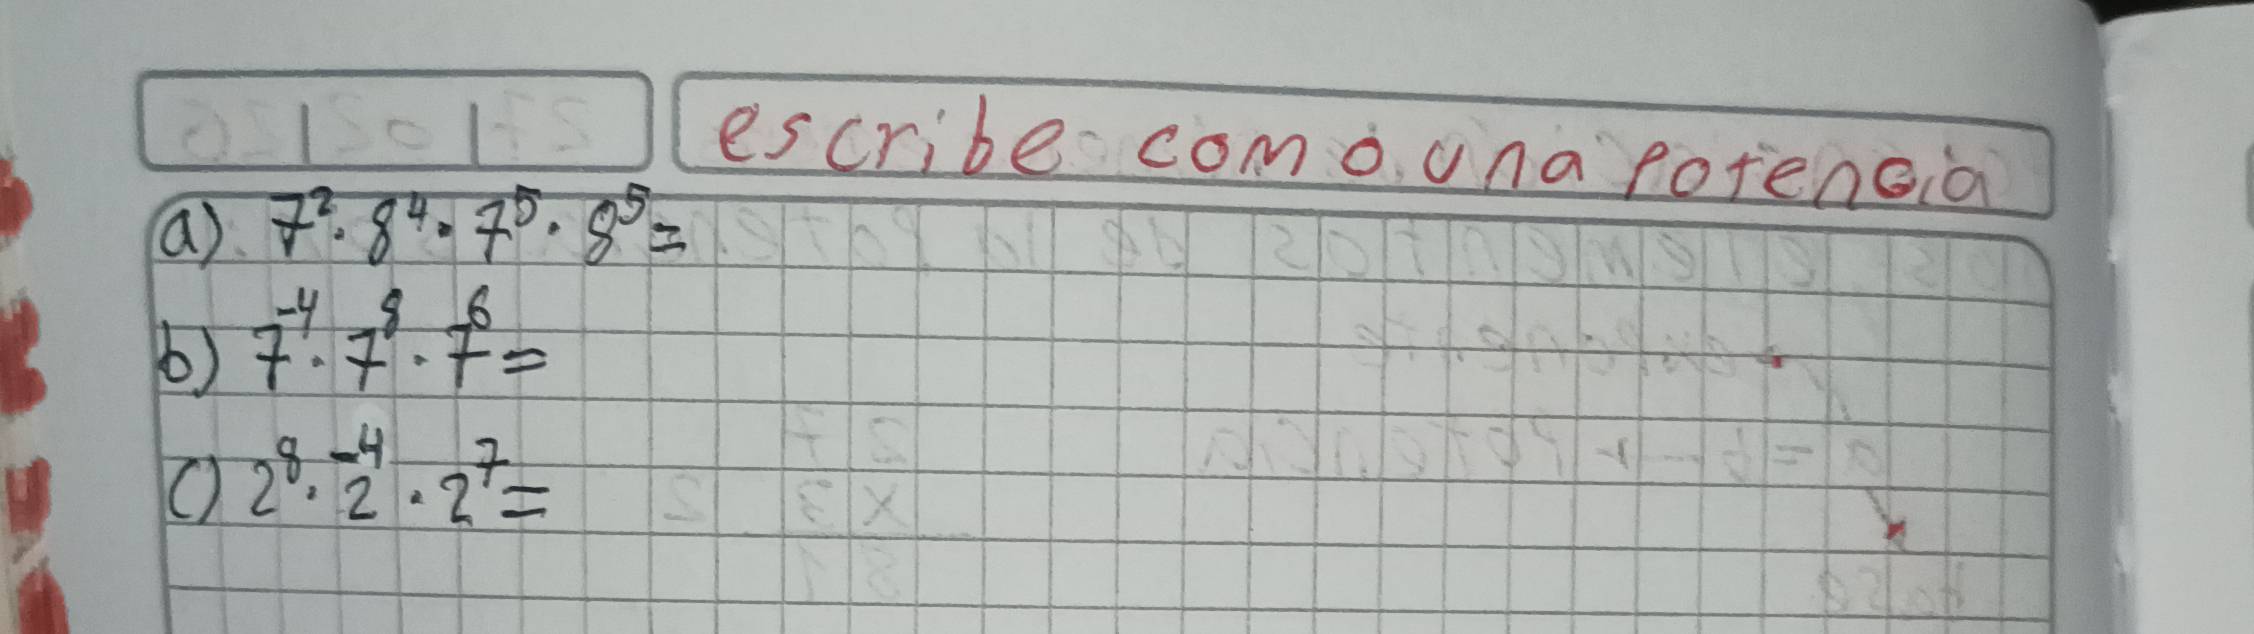 escribe como una potencia
a) 7² · 8⁴ · 7⁵ · 8⁵ =
b) 7⁻⁴ · 7⁸ · 7⁶ =
c) 2⁸ · 2⁻⁴ · 2⁷ =